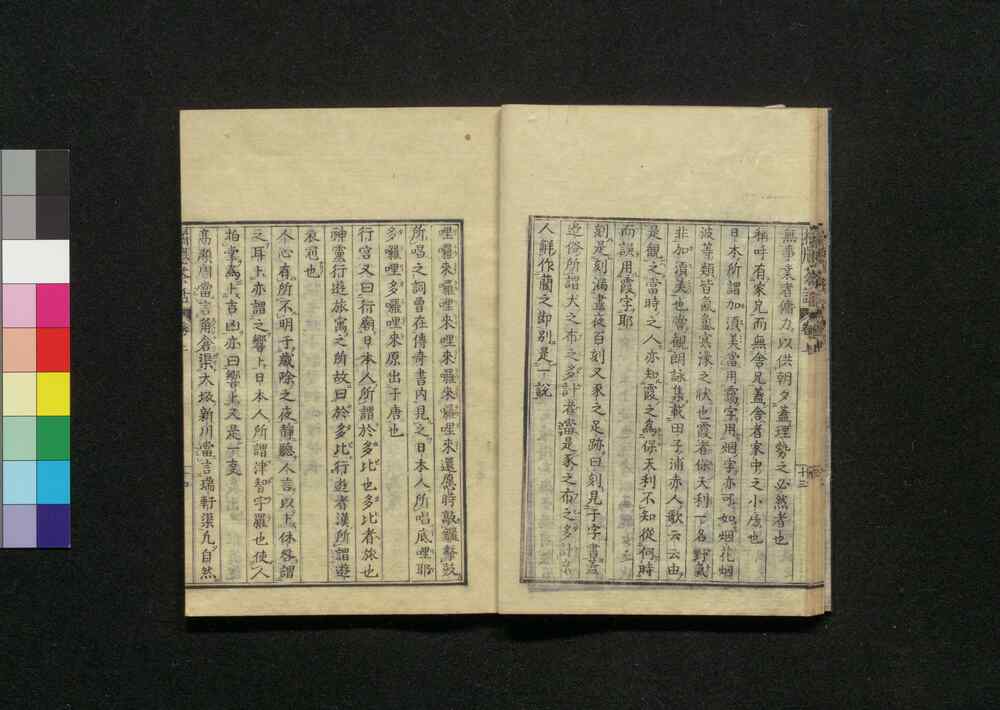 無事業者傭力以供朝夕蓋理勢之必然者也
稱呼有家兄而無舍兄蓋舍者家中之小座也
日本所謂加須美當用靄字用烟字亦可如烟花烟
波等類皆氣盒冥濛之状也霞者保天利一名野氣
非加須美也嘗觀朗詠集載田子浦赤人歌云云由
是觀之當時之人亦知霞之為保天利不知從何時
而誤用霞字耶
刻是刻漏晝夜百刻又豕之足跡曰刻見于字書
近俗所謂犬之布之多計者當是豕之布之多計
人鮮作蘭之御別是一説
哩囉來囉哩來哩來囉來囉哩來還應時敲鑼擊鼓
所唱之詞曹在傳奇書内見之日本人所唱底哩耶
多囉哩多囉哩來原出于唐也
行宮又曰行廟日本人所謂於多比也多比者旅也
神靈行遊旅寓之所故曰於多比行遊者漢所謂遊
衣冠也
人心有所不明于歲除之夜靜聽人言以上休咎謂
之耳卜亦謂之響卜日本人所謂津智宇羅也使人
拍掌為卜吉凶亦曰響卜又是一意
高瀬川當言角倉渠大坂新川當言瑞軒渠凡自然